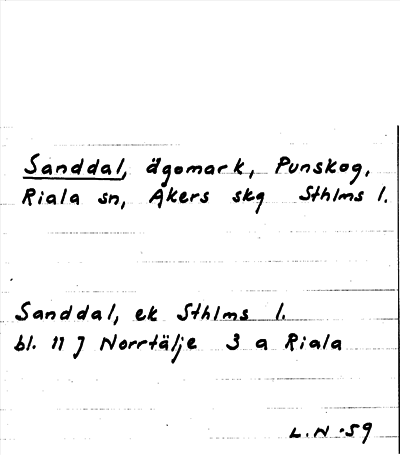 Sanddal, ägomark, Punskog,
Riala sn, Åkers skg Sthlms l.
Sanddal, ek Sthlms l.
bl. 11 J Norrtälje 3 a Riala
L.N -59